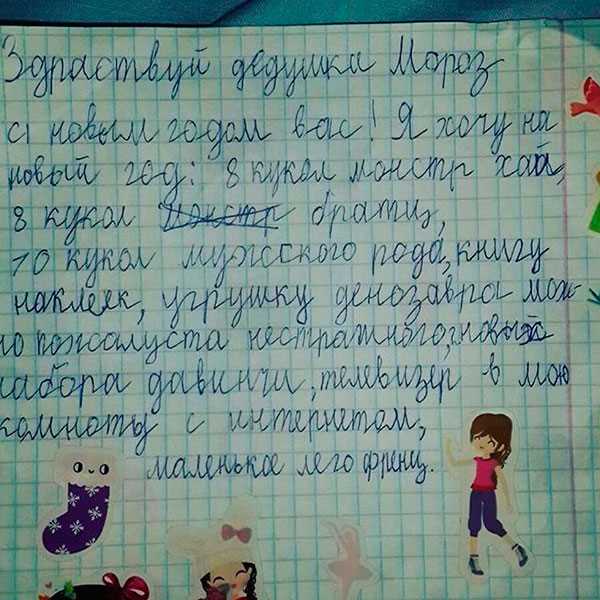 Здраствуй дедушка Мороз
с новым годом вас! Я хочу на
новый год: 8 кукол монстр хай,
8 кукол монстр братц,
10 кукол мужского рода, книгу
наклеек, угрушку денозавра мож-
но пожалуста нестрашного,
набора давинчи, телевизер в мою
комноты с интернетом,
маленькое лего френц.